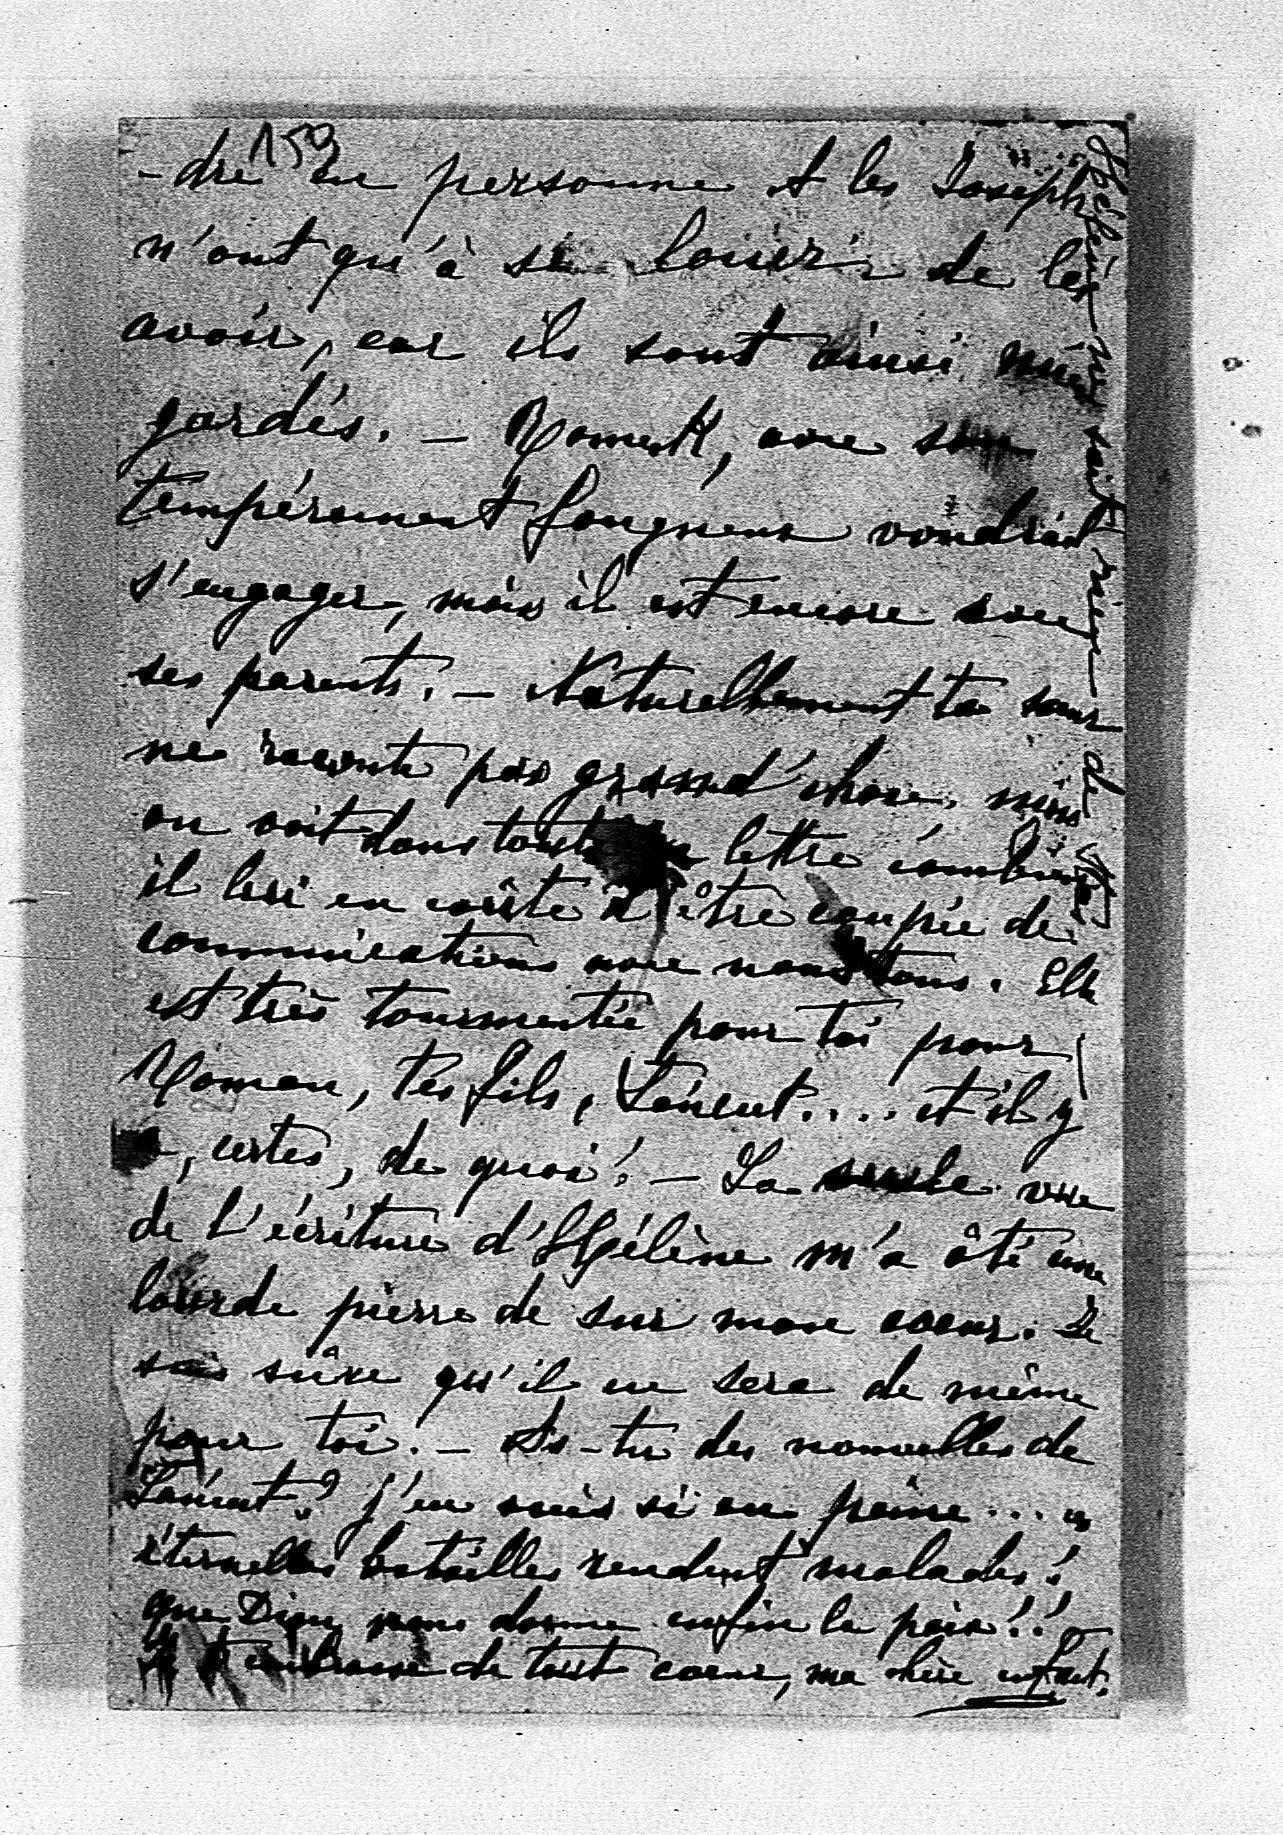 159
-dre en personne et les Joseph
n'ont qu'à se louer de les
avoir, car ils sont ainsi mieux
gardés. — Romek, avec son
tempérament fougueux voudrait
s'engager, mais il est encore sous
ses parents. — Naturellement ta sœur
ne raconte pas grand'chose, mais
on voit dans toute sa lettre combien
il lui en coûte d'être coupée de
communications avec nous tous. Elle
est très tourmentée pour toi pour
Roman, tes fils, et il y
a, certes, de quoi! — La seule vue
de l'écriture d'Hélène m'a ôté une
lourde pierre de sur mon coeur. Je
suis sûre qu'il en sera de même
pour toi. — As-tu des nouvelles de
j'en suis si en peine... ces
éternelles batailles rendent malades!
que Dieu nous donne enfin la paix!!
Je t'embrasse de tout coeur, ma chère enfant.
Hélène ne sait rien de